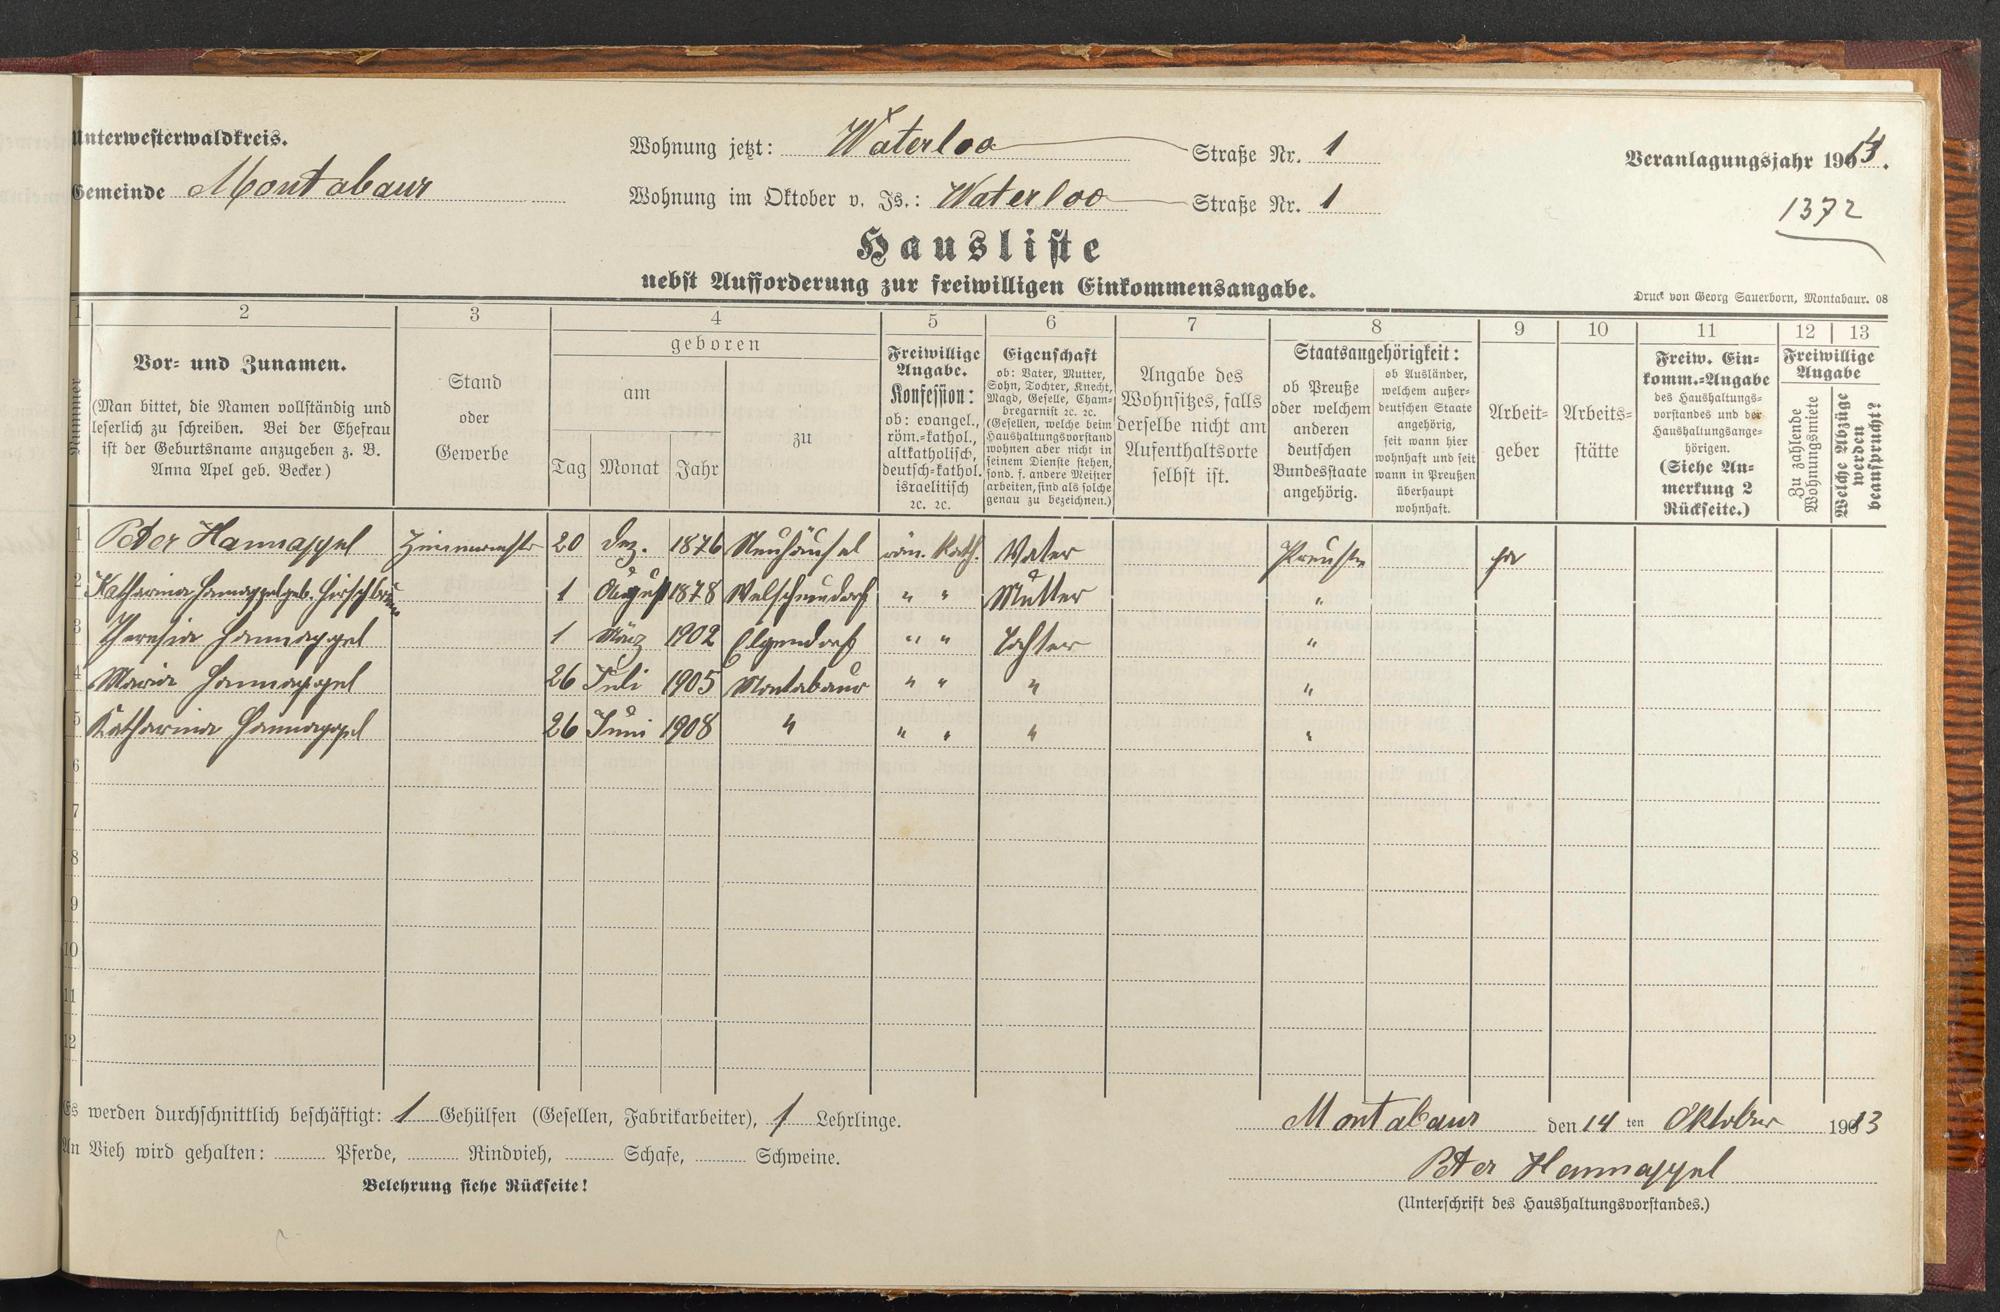 Unterwesterwaldkreis.
Gemeinde Montabaur
Wohnung jetzt: Waterloo Straße Nr. 1
Wohnung im Oktober v. Js.: Waterloo Straße Nr. 1
Veranlagungsjahr 1914.
1372
Hausliste
nebst Aufforderung zur freiwilligen Einkommensangabe.
Druck von Georg Sauerborn, Montabaur. 08
1 2 3 4 5 6 7 8 9 10 11 12 13
Nummer
Vor- und Zunamen.
(Man bittet, die Namen vollständig und
leserlich zu schreiben. Bei der Ehefrau
ist der Geburtsname anzugeben z. B.
Anna Apel geb. Becker)
Stand
oder
Gewerbe
geboren
am
Tag Monat Jahr
zu
Freiwillige
Angabe.
Konfession:
ob: evangel.,
röm.-kathol.,
altkatholisch,
deutsch-kathol.
israelitisch
ꝛc. ꝛc.
Eigenschaft
ob: Vater, Mutter,
Sohn, Tochter, Knecht,
Magd, Geselle, Cham-
bregarnist ꝛc. ꝛc.
(Gesellen, welche beim
Haushaltungsvorstand
wohnen aber nicht in
seinem Dienste stehen,
sond. f. andere Meister
arbeiten, sind als solche
genau zu bezeichnen.)
Angabe des
Wohnsitzes, falls
derselbe nicht am
Aufenthaltsorte
selbst ist.
Staatsangehörigkeit:
ob Preuße
oder welchem
anderen
deutschen
Bundesstaate
angehörig.
ob Ausländer,
welchem außer-
deutschen Staate
angehörig,
seit wann hier
wohnhaft und seit
wann in Preußen
überhaupt
wohnhaft.
Arbeit-
geber
Arbeits-
stätte
Freiw. Ein-
komm.-Angabe
des Haushaltungs-
vorstandes und der
Haushaltungsange-
hörigen.
(Siehe An-
merkung 2
Rückseite.)
Freiwillige
Angabe
Zu zahlende
Wohnungsmiete
Welche Abzüge
werden
beansprucht?
1 Peter Hannappel Zimmermstr 20 Dez. 1876 Neuhäusel röm. Kath. Vater Preuße ja
2 Katharina Hannappel geb. Hirschbrun 1 August 1878 Welschneudorf " " Mutter "
3 Theresia Hannappel 1 März 1902 Elgendorf " " Tochter "
4 Maria Hannappel 26 Juli 1905 Montabaur " " " "
5 Katharina Hannappel 26 Juni 1908 " " " " "
6
7
8
9
10
11
12
Es werden durchschnittlich beschäftigt: 1 Gehülfen (Gesellen, Fabrikarbeiter), 1 Lehrlinge.
An Vieh wird gehalten: Pferde, Rindvieh, Schafe, Schweine.
Belehrung siehe Rückseite!
Montabaur den 14 ten Oktober 1913
Peter Hannappel
(Unterschrift des Haushaltungsvorstandes.)